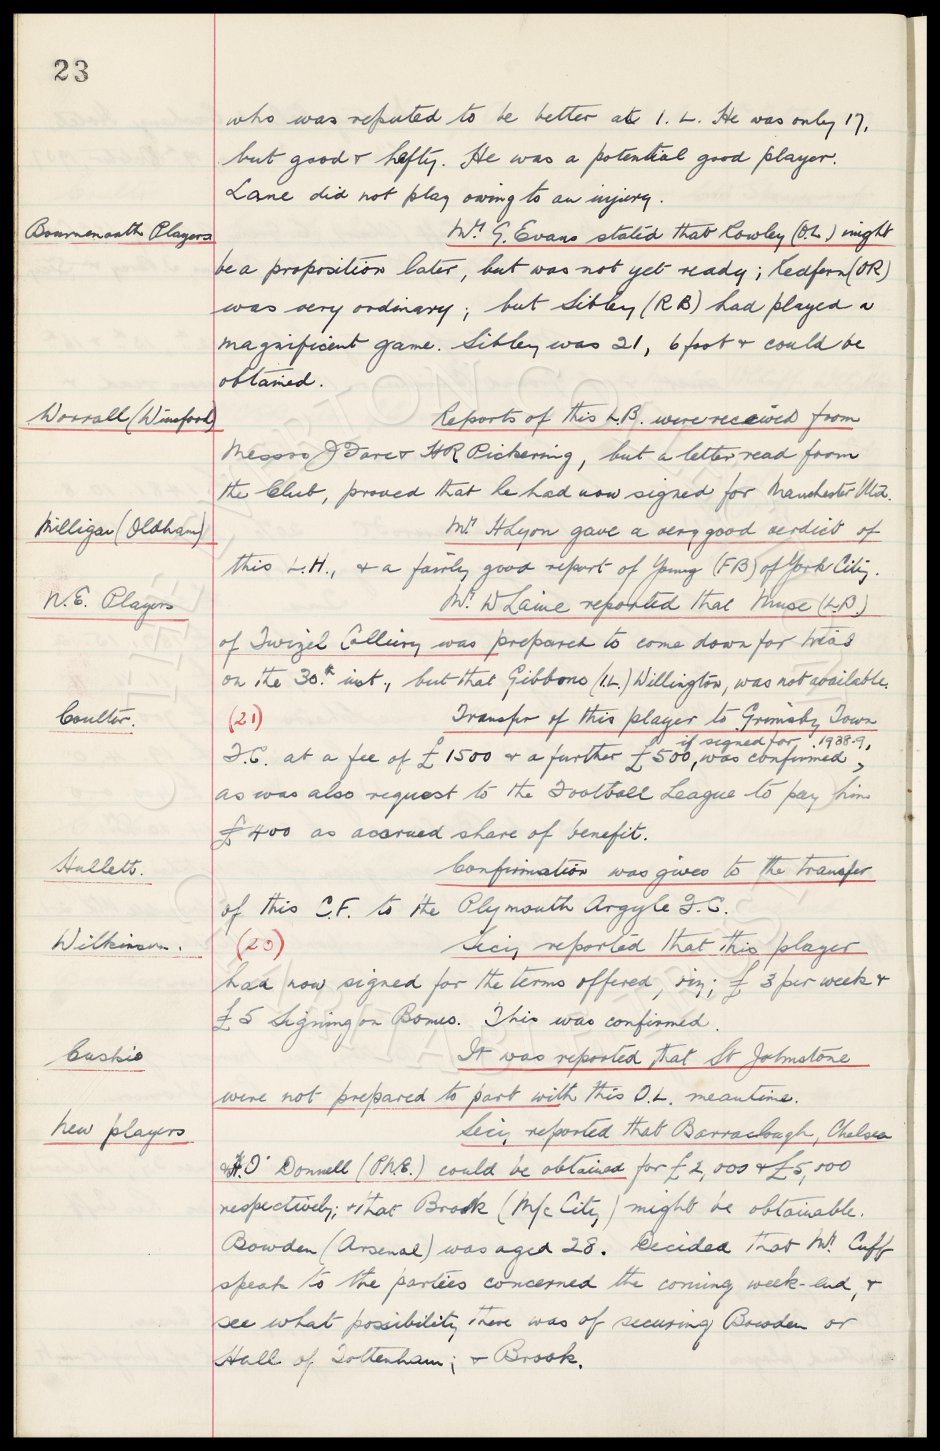 23
who was reputed to be better at I.L. He was only 17,
but good & hefty. He was a potential good player.
Lane did not play owing to an injury.
Bournemouth Players
Mr G. Evans stated that Rowley (O.L.) might
be a proposition later, but was not yet ready; Redfern (OR)
was very ordinary; but Sibley (R B) had played a
magnificent game. Sibley was 21, 6 foot & could be
obtained.
Worrall (Winsford)
Reports of this L.B. were received from
Messrs J Dare & HR Pickering, but a letter read from
the Club, proved that he had now signed for Manchester Utd.
Milligan (Oldham)
Mr H Lyon gave a very good verdict of
this L.H., & a fairly good report of Young (FB) of York City.
N.E. Players
Mr W Laine reported that Muse (L.B.)
of Twizel Colliery was prepared to come down for trial
on the 30th inst., but that Gibbons (I.L.) Willington, was not available.
Coulter.
(21)
Transfer of this player to Grimsby Town
if signed for 1938-9,
F.C. at a fee of £1500 & a further £500, was confirmed,
as was also request to the Football League to pay him
£400 as accrued share of benefit.
Hullett.
Confirmation was given to the transfer
of this C.F. to the Plymouth Argyle F.C.
Wilkinson.
(20)
Secy reported that this player
had now signed for the terms offered, viz; £3 per week &
£5 Signing on Bonus. This was confirmed.
Caskie
It was reported that St Johnstone
were not prepared to part with this O.L. meantime.
New players
Secy reported that Barraclough, Chelsea
& H. O'Donnell (P.N.E.) could be obtained for £2,000 & £5,000
respectively; & that Brook (M/c City) might be obtainable.
Bowden (Arsenal) was aged 28. Decided that Mr Cuff
speak to the parties concerned the coming week-end, &
see what possibility there was of securing Bowden or
Hall of Tottenham; & Brook.